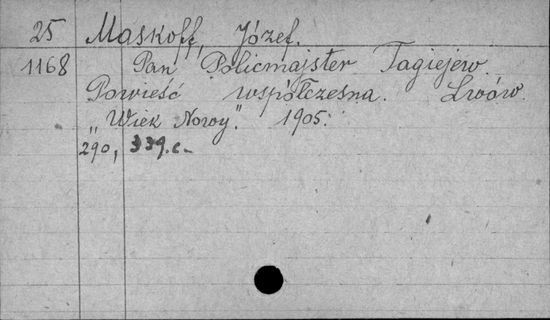 25 Maskoff, Józef.
1168 Pan Policmajster Tagiejew.
Powieść współczesna. Lwów.
"Wiek Nowy". 1905.
290, 339.c.